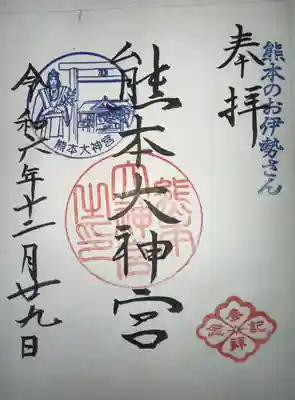 熊本のお伊勢さん
奉拝
熊本大神宮
熊本大神宮
熊本
大神宮
之印
参拝
記念
令和六年十二月廿九日